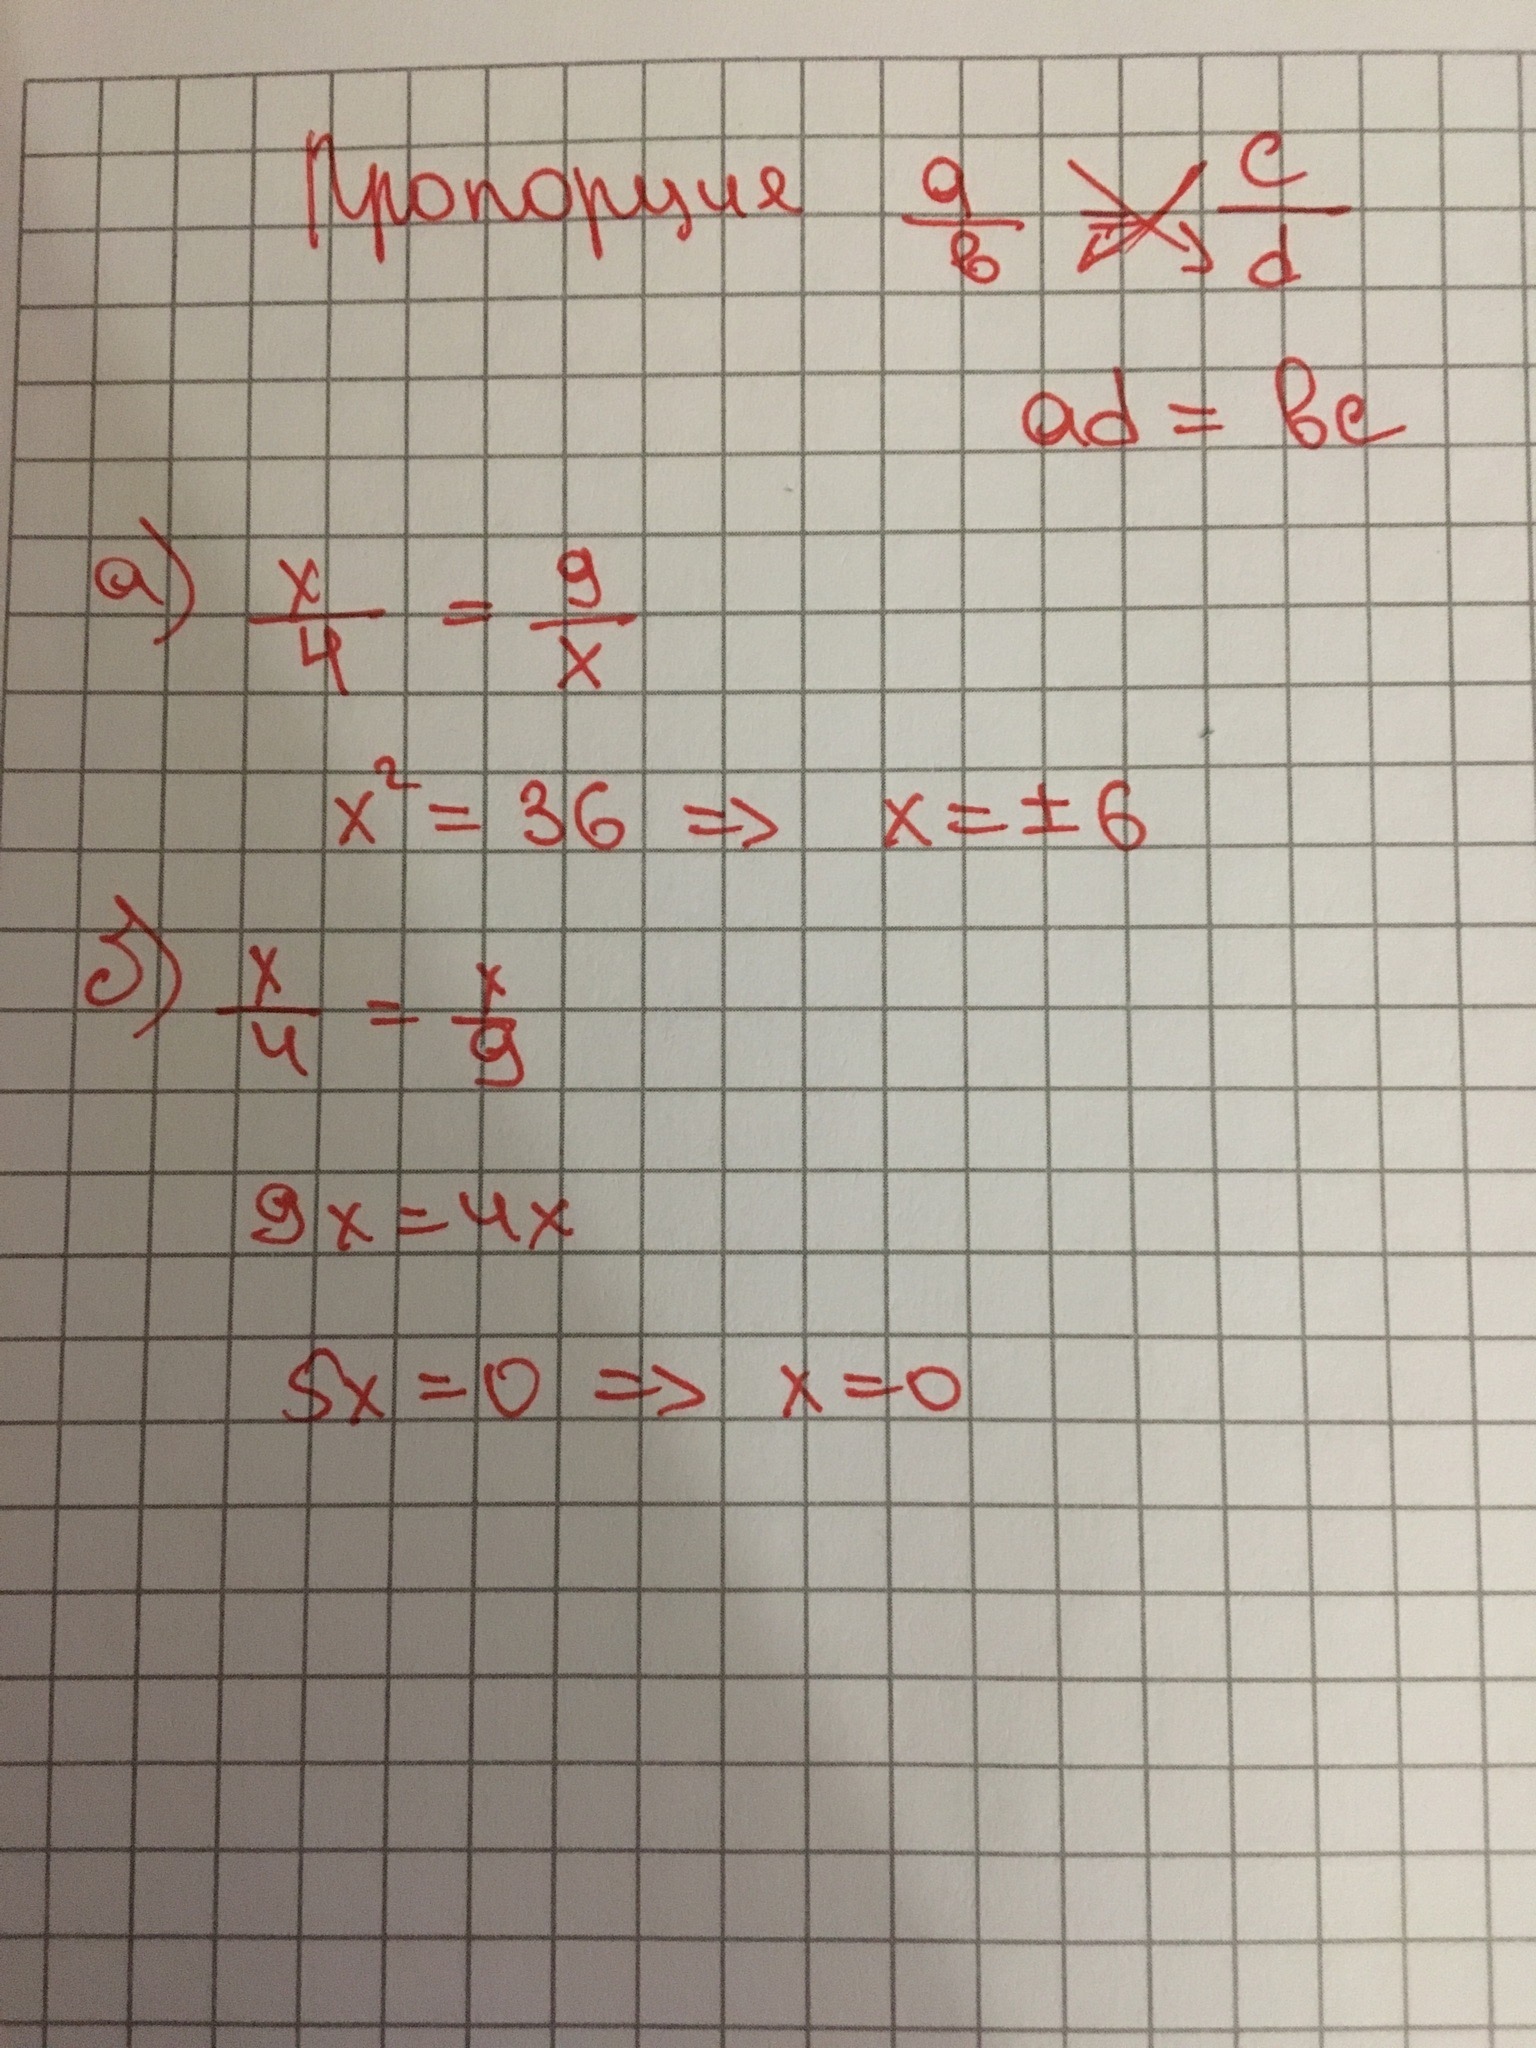 Пропорция a/b = c/d
ad = bc
а) x/4 = 9/x
x² = 36 => x = ±6
б) x/4 = x/9
9x = 4x
5x = 0 => x = 0